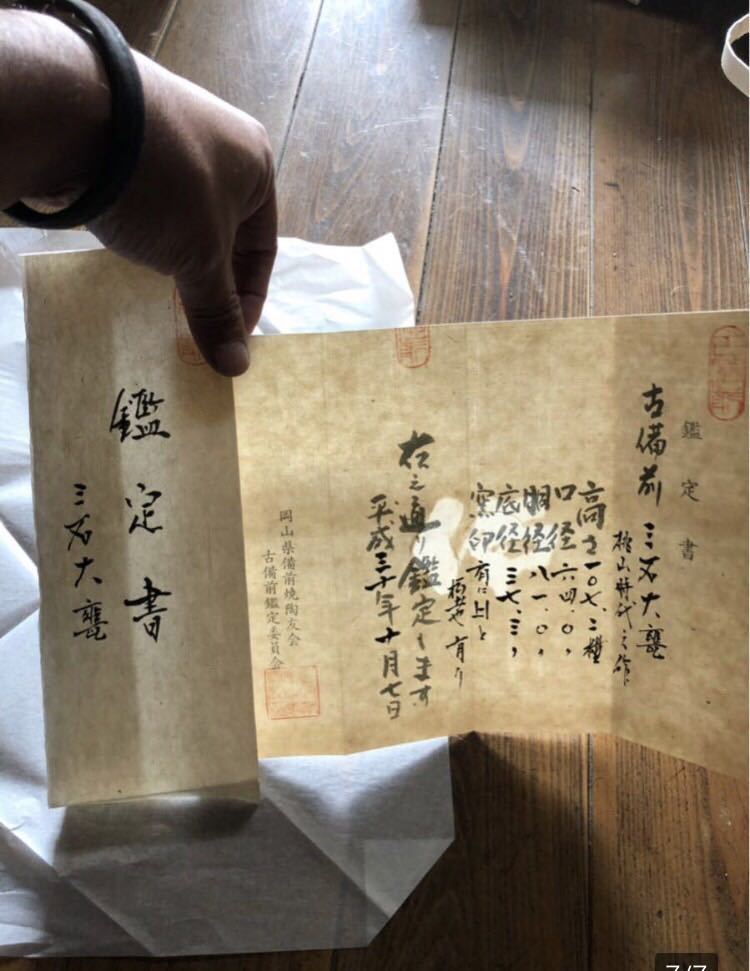 鑑定書
古備前 三石大甕
桃山時代之作
高さ一〇七、二糎
口径六四、〇〃
胴径八一、〇〃
底径三七、三〃
窯印 有
右之通り鑑定します
平成三十年十月七日
岡山県備前焼陶友会
古備前鑑定委員会
鑑定書
三石大甕
7/7